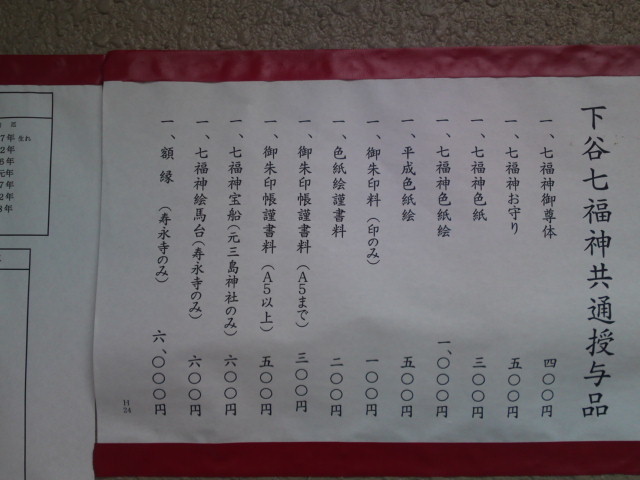 下谷七福神共通授与品
一、七福神御尊体 四〇〇円
一、七福神お守り 五〇〇円
一、七福神色紙 三〇〇円
一、七福神色紙絵 一、〇〇〇円
一、平成色紙絵 五〇〇円
一、御朱印料（印のみ） 一〇〇円
一、色紙絵謹書料 二〇〇円
一、御朱印帳謹書料（A5まで） 三〇〇円
一、御朱印帳謹書料（A5以上） 五〇〇円
一、七福神宝船（元三島神社のみ） 六〇〇円
一、七福神絵馬台（寿永寺のみ） 六〇〇円
一、額縁（寿永寺のみ） 六、〇〇〇円
H24
7年生れ
2年
元年
7年
2年